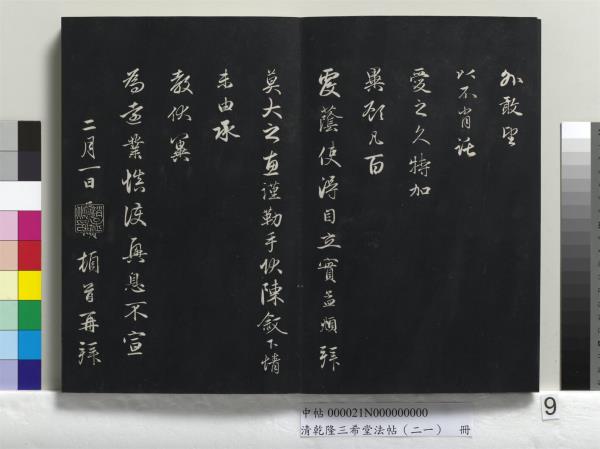 外敢望
以不肖託
愛之久特加
畢顧凡百
覆蔭使得自立實孟頫拜
莫大之惠謹勒手狀陳敘下情
未由承
教伏冀
為遠業慎護興息不宣
二月一日
頓首再拜
中帖 000021N000000000
清乾隆三希堂法帖(二一) 冊
9